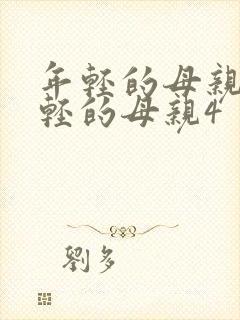 年輕的母親
輕的母親4
劉多